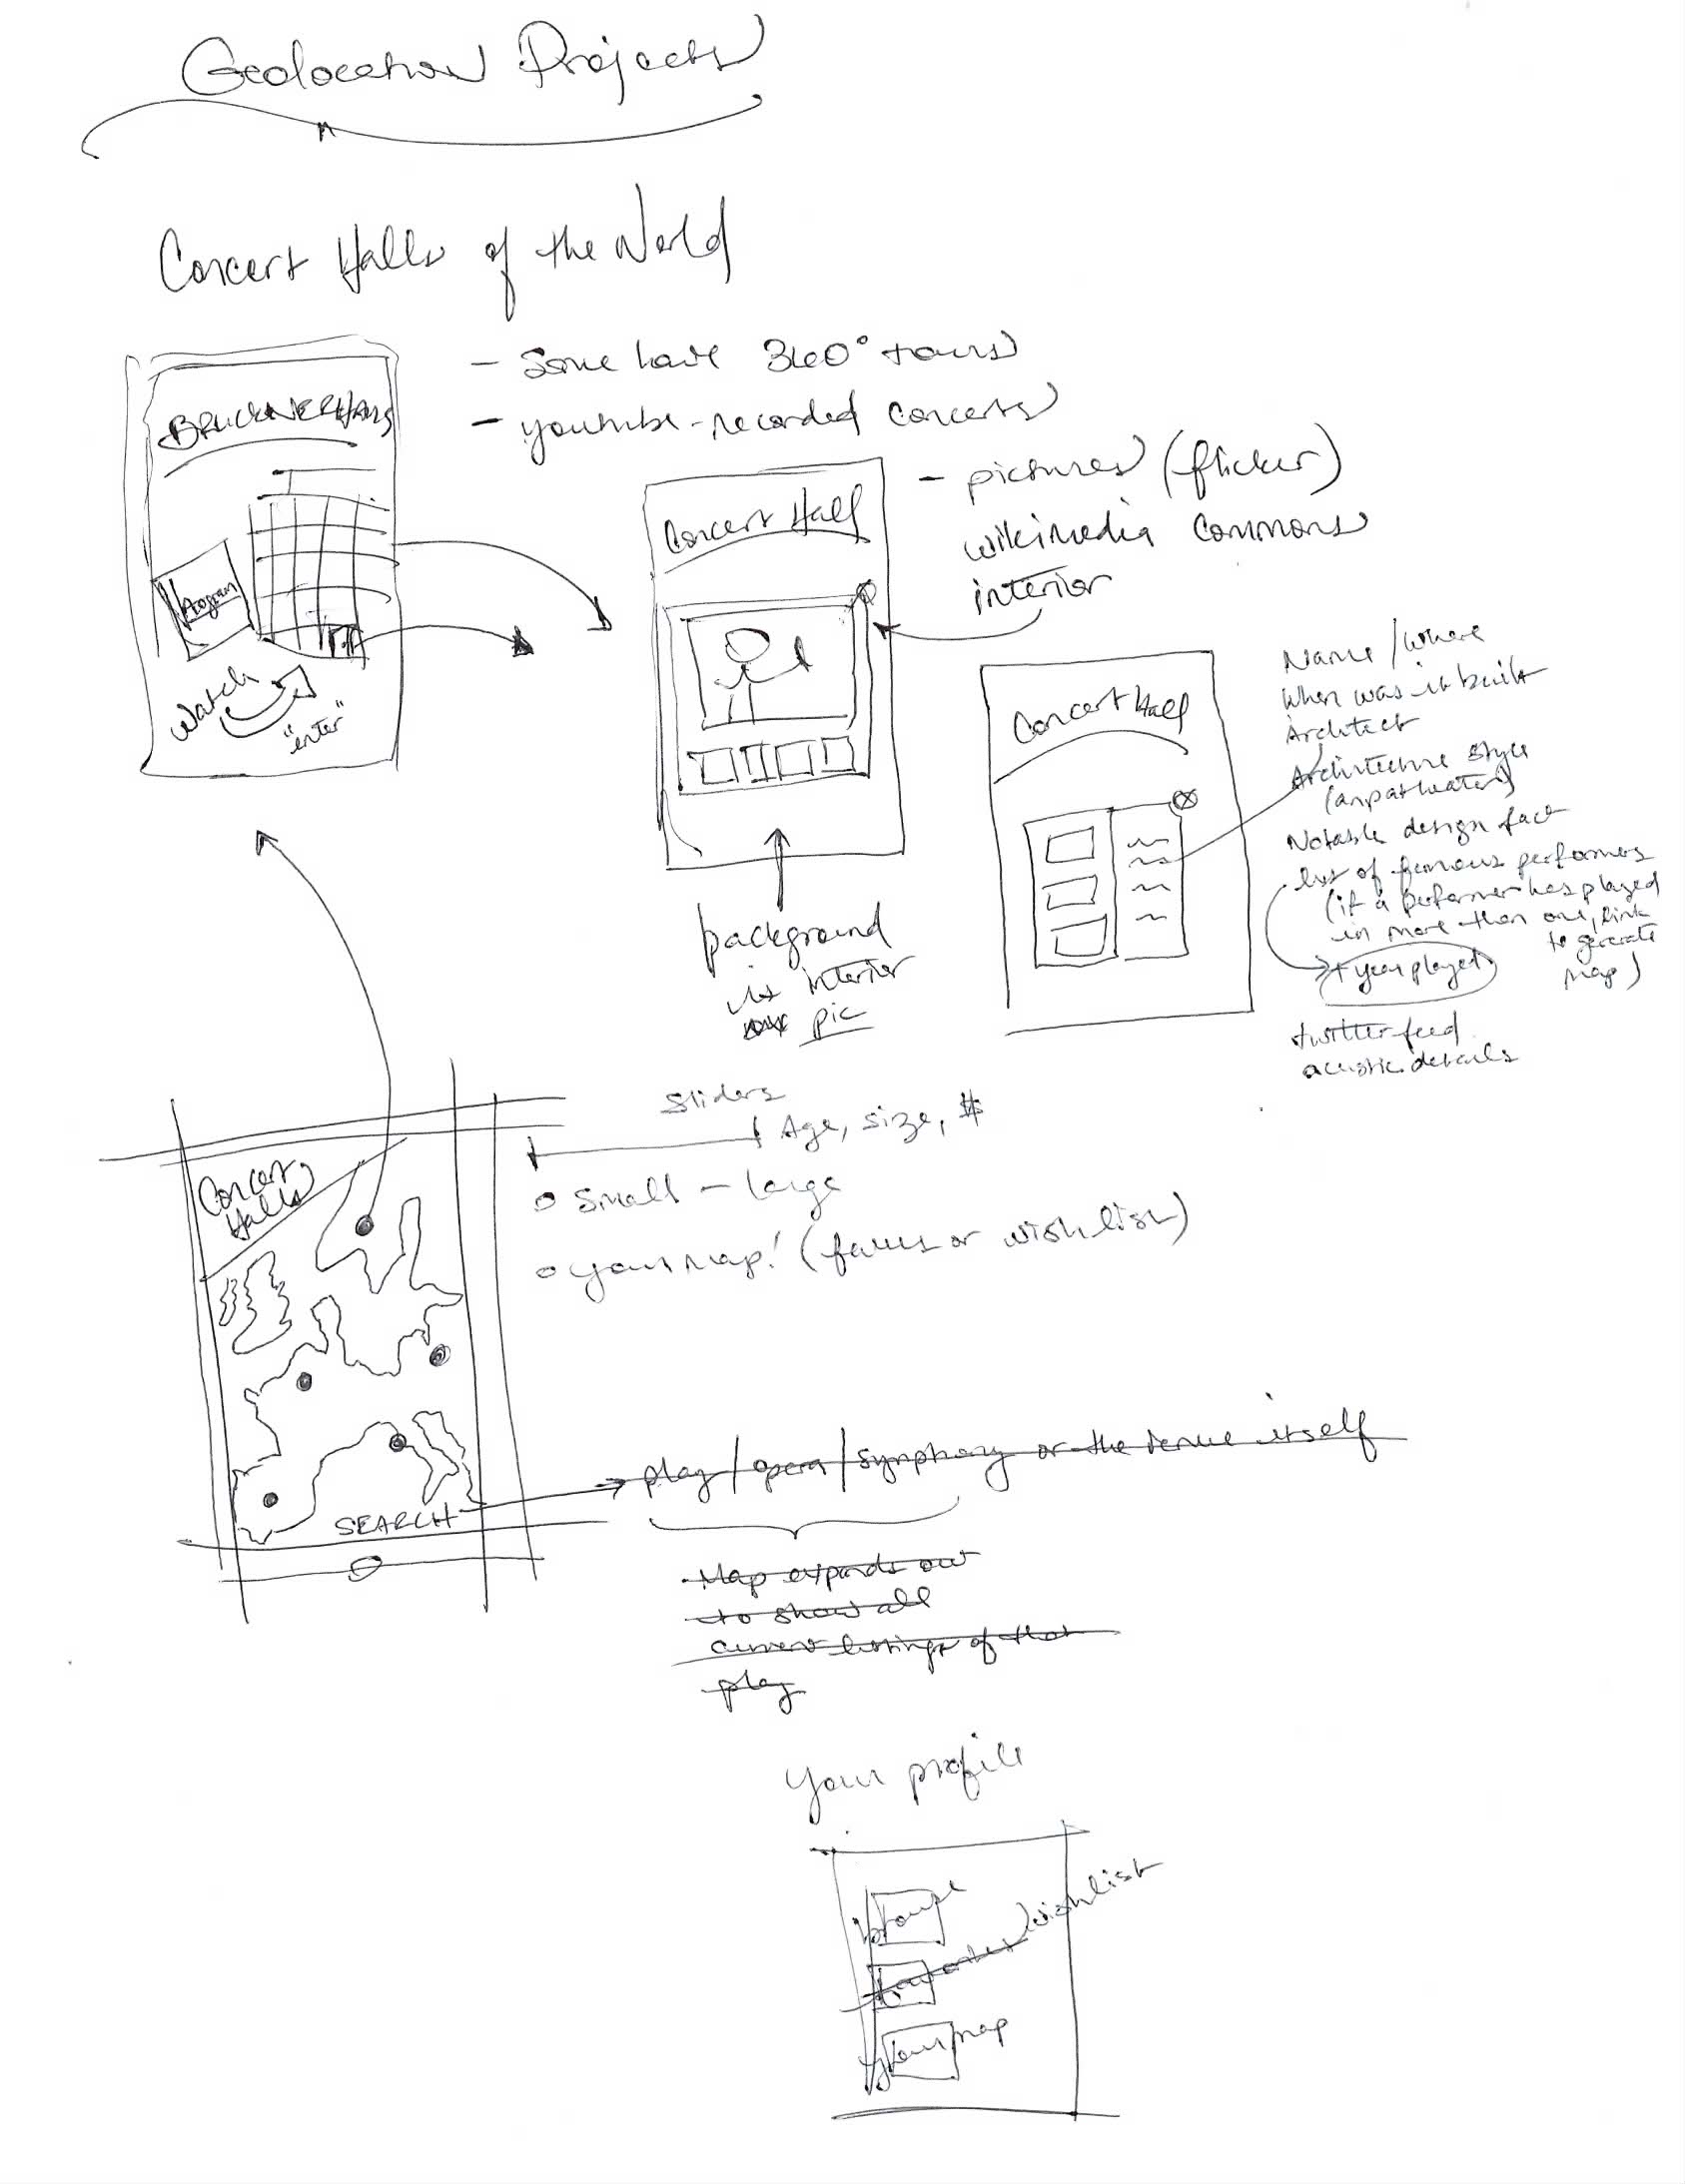 Geolocation Projects
Concert Halls of the World
- Some have 360° tours
- youtube-recorded concerts
- pictures (flicker)
wikimedia commons
interior
BRUCKNERHAUS
Program
Watch
"enter"
Concert Hall
background
is interior
pic
Concert Hall
Name / where
when was it built
Architect
Architecture style
Notable design fact
list of famous performers
(if a performer has played
in more than one, link
to generate
map)
+ year played
twitter feed
acoustic details
Sliders
Age, size, $
Small - large
your map! (faves or wishlist)
Concert
Halls
SEARCH
play / opera / symphony or the venue itself
Map expands out
to show all
current listings of that
play
your profile
wishlist
your map